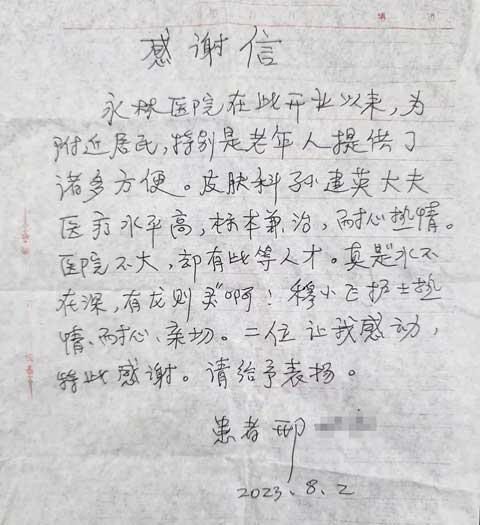 感谢信
永林医院在此开业以来，为
附近居民，特别是老年人提供了
诸多方便。皮肤科孙建英大夫
医疗水平高，标本兼治，耐心热情。
医院不大，却有此等人才。真是"水不
在深，有龙则灵"啊！穆小飞护士热
情、耐心、亲切。二位让我感动，
特此感谢。请给予表扬。
患者 邢
2023.8.2